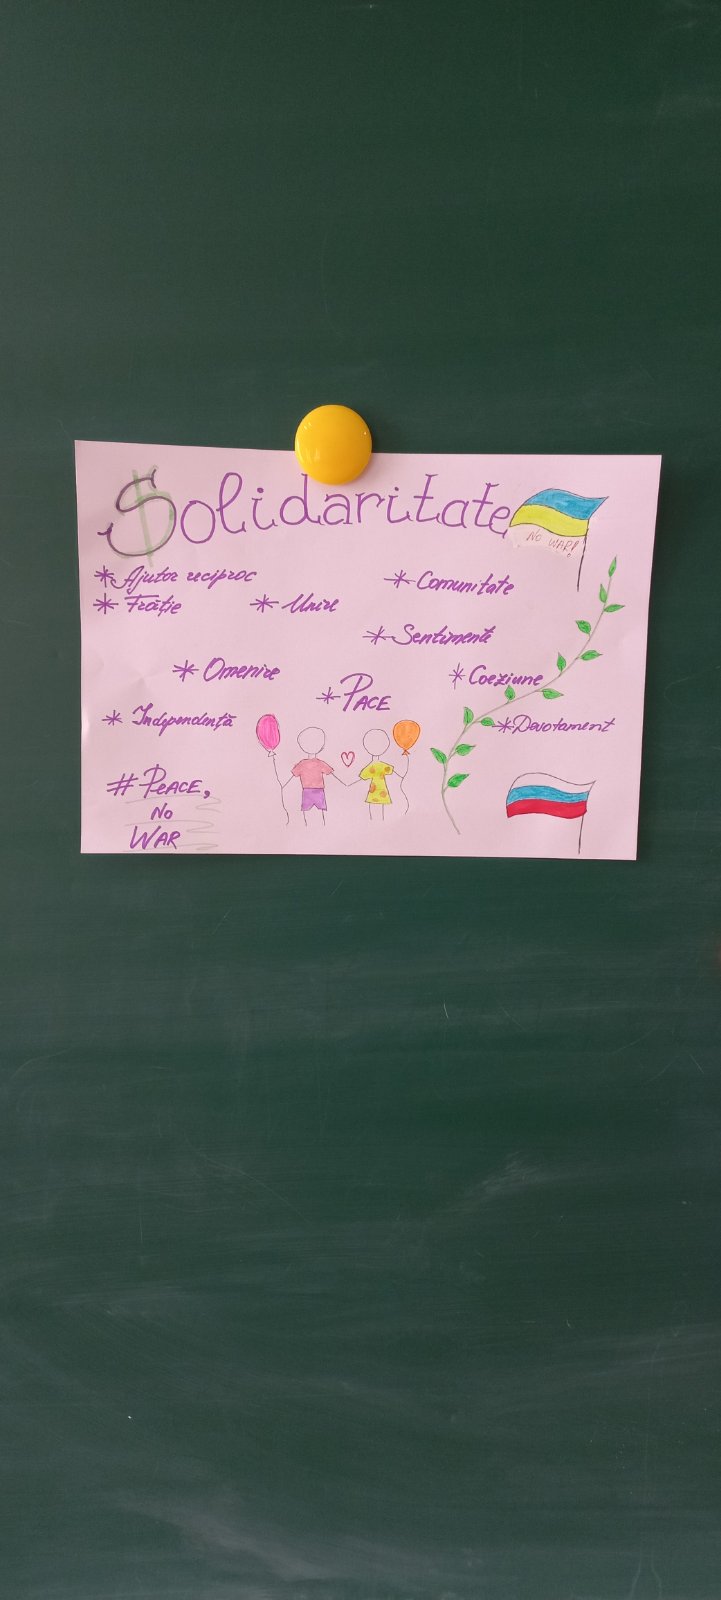 Solidaritate
NO WAR!
* Ajutor reciproc
* Comunitate
* Frăție
* Unire
* Sentimente
* Omenire
* Coeziune
* PACE
* Independență
* Devotament
# PEACE,
NO
WAR